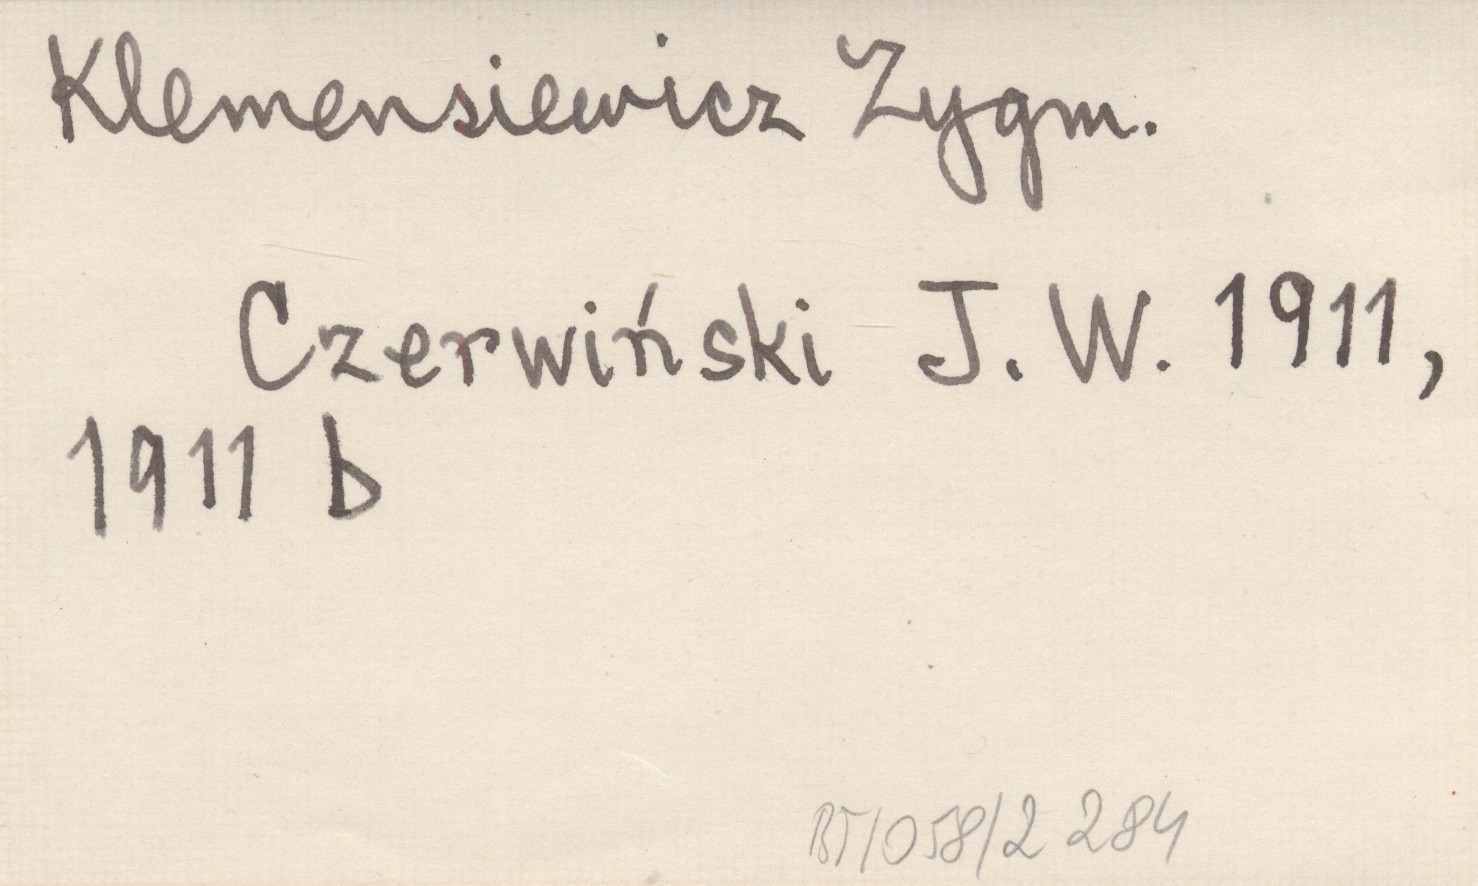 Klemensiewicz Zygm.
Czerwiński J. W. 1911,
1911 b
BT/058/2 284